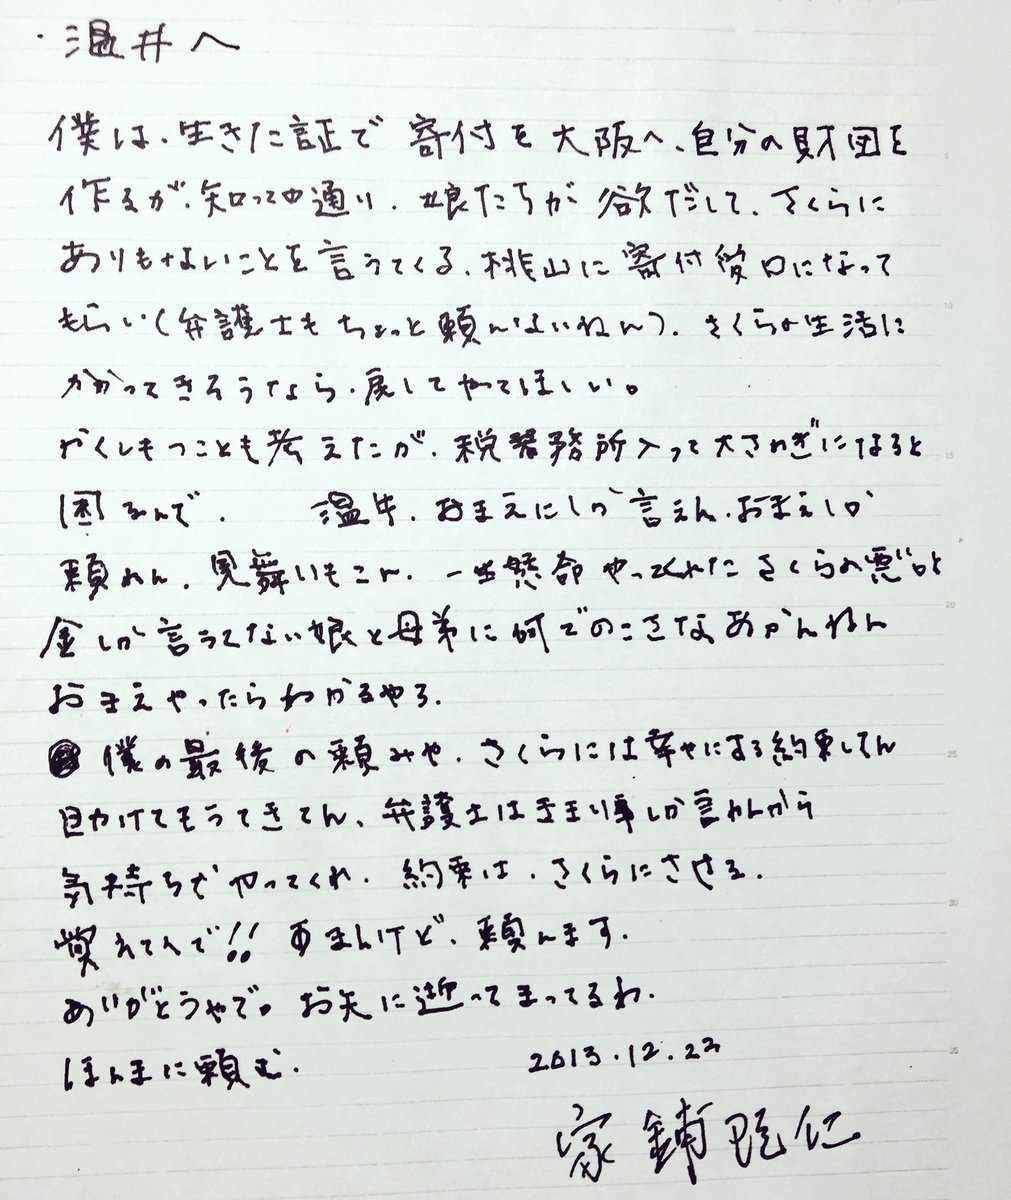 ・温井へ
僕は、生きた証で寄付を大阪へ、自分の財団を
作るが、知っての通り、娘たちが欲だして、さくらに
ありもせないことを言うてくる、桃山に寄付受口になって
もらい(弁護士もちょっと頼んないねん)、さくらの生活に
かかってきそうなら、戻してやてほしい。
かくしもつことも考えたが、税務所入って大さわぎになると
困るんで、 温井、おまえにしか言えん、おまえしか
頼れん、見舞いもこん、一生懸命やってくれたさくらの悪口と
金しか言うてない娘と母弟に何でのこさなあかんねん
おまえやったらわかるやろ、
僕の最後の頼みや、さくらには幸せにする約束してん
目かけてもうてきてん、弁護士はきまり事しか言わんから
気持ちでやってくれ、約束は、さくらにさせる、
覚えてんで!! すまんけど、頼んます、
ありがとうやで。お先に逝ってまってるわ、
ほんまに頼む、
2013.12.23
家鋪 仁